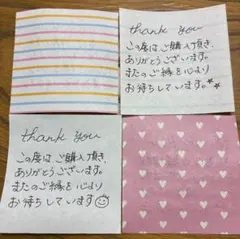 thank you
この度はご購入頂き、
ありがとうございます。
またのご縁を心より
お待ちしています。
thank you
この度はご購入頂き、
ありがとうございます。
またのご縁を心より
お待ちしています